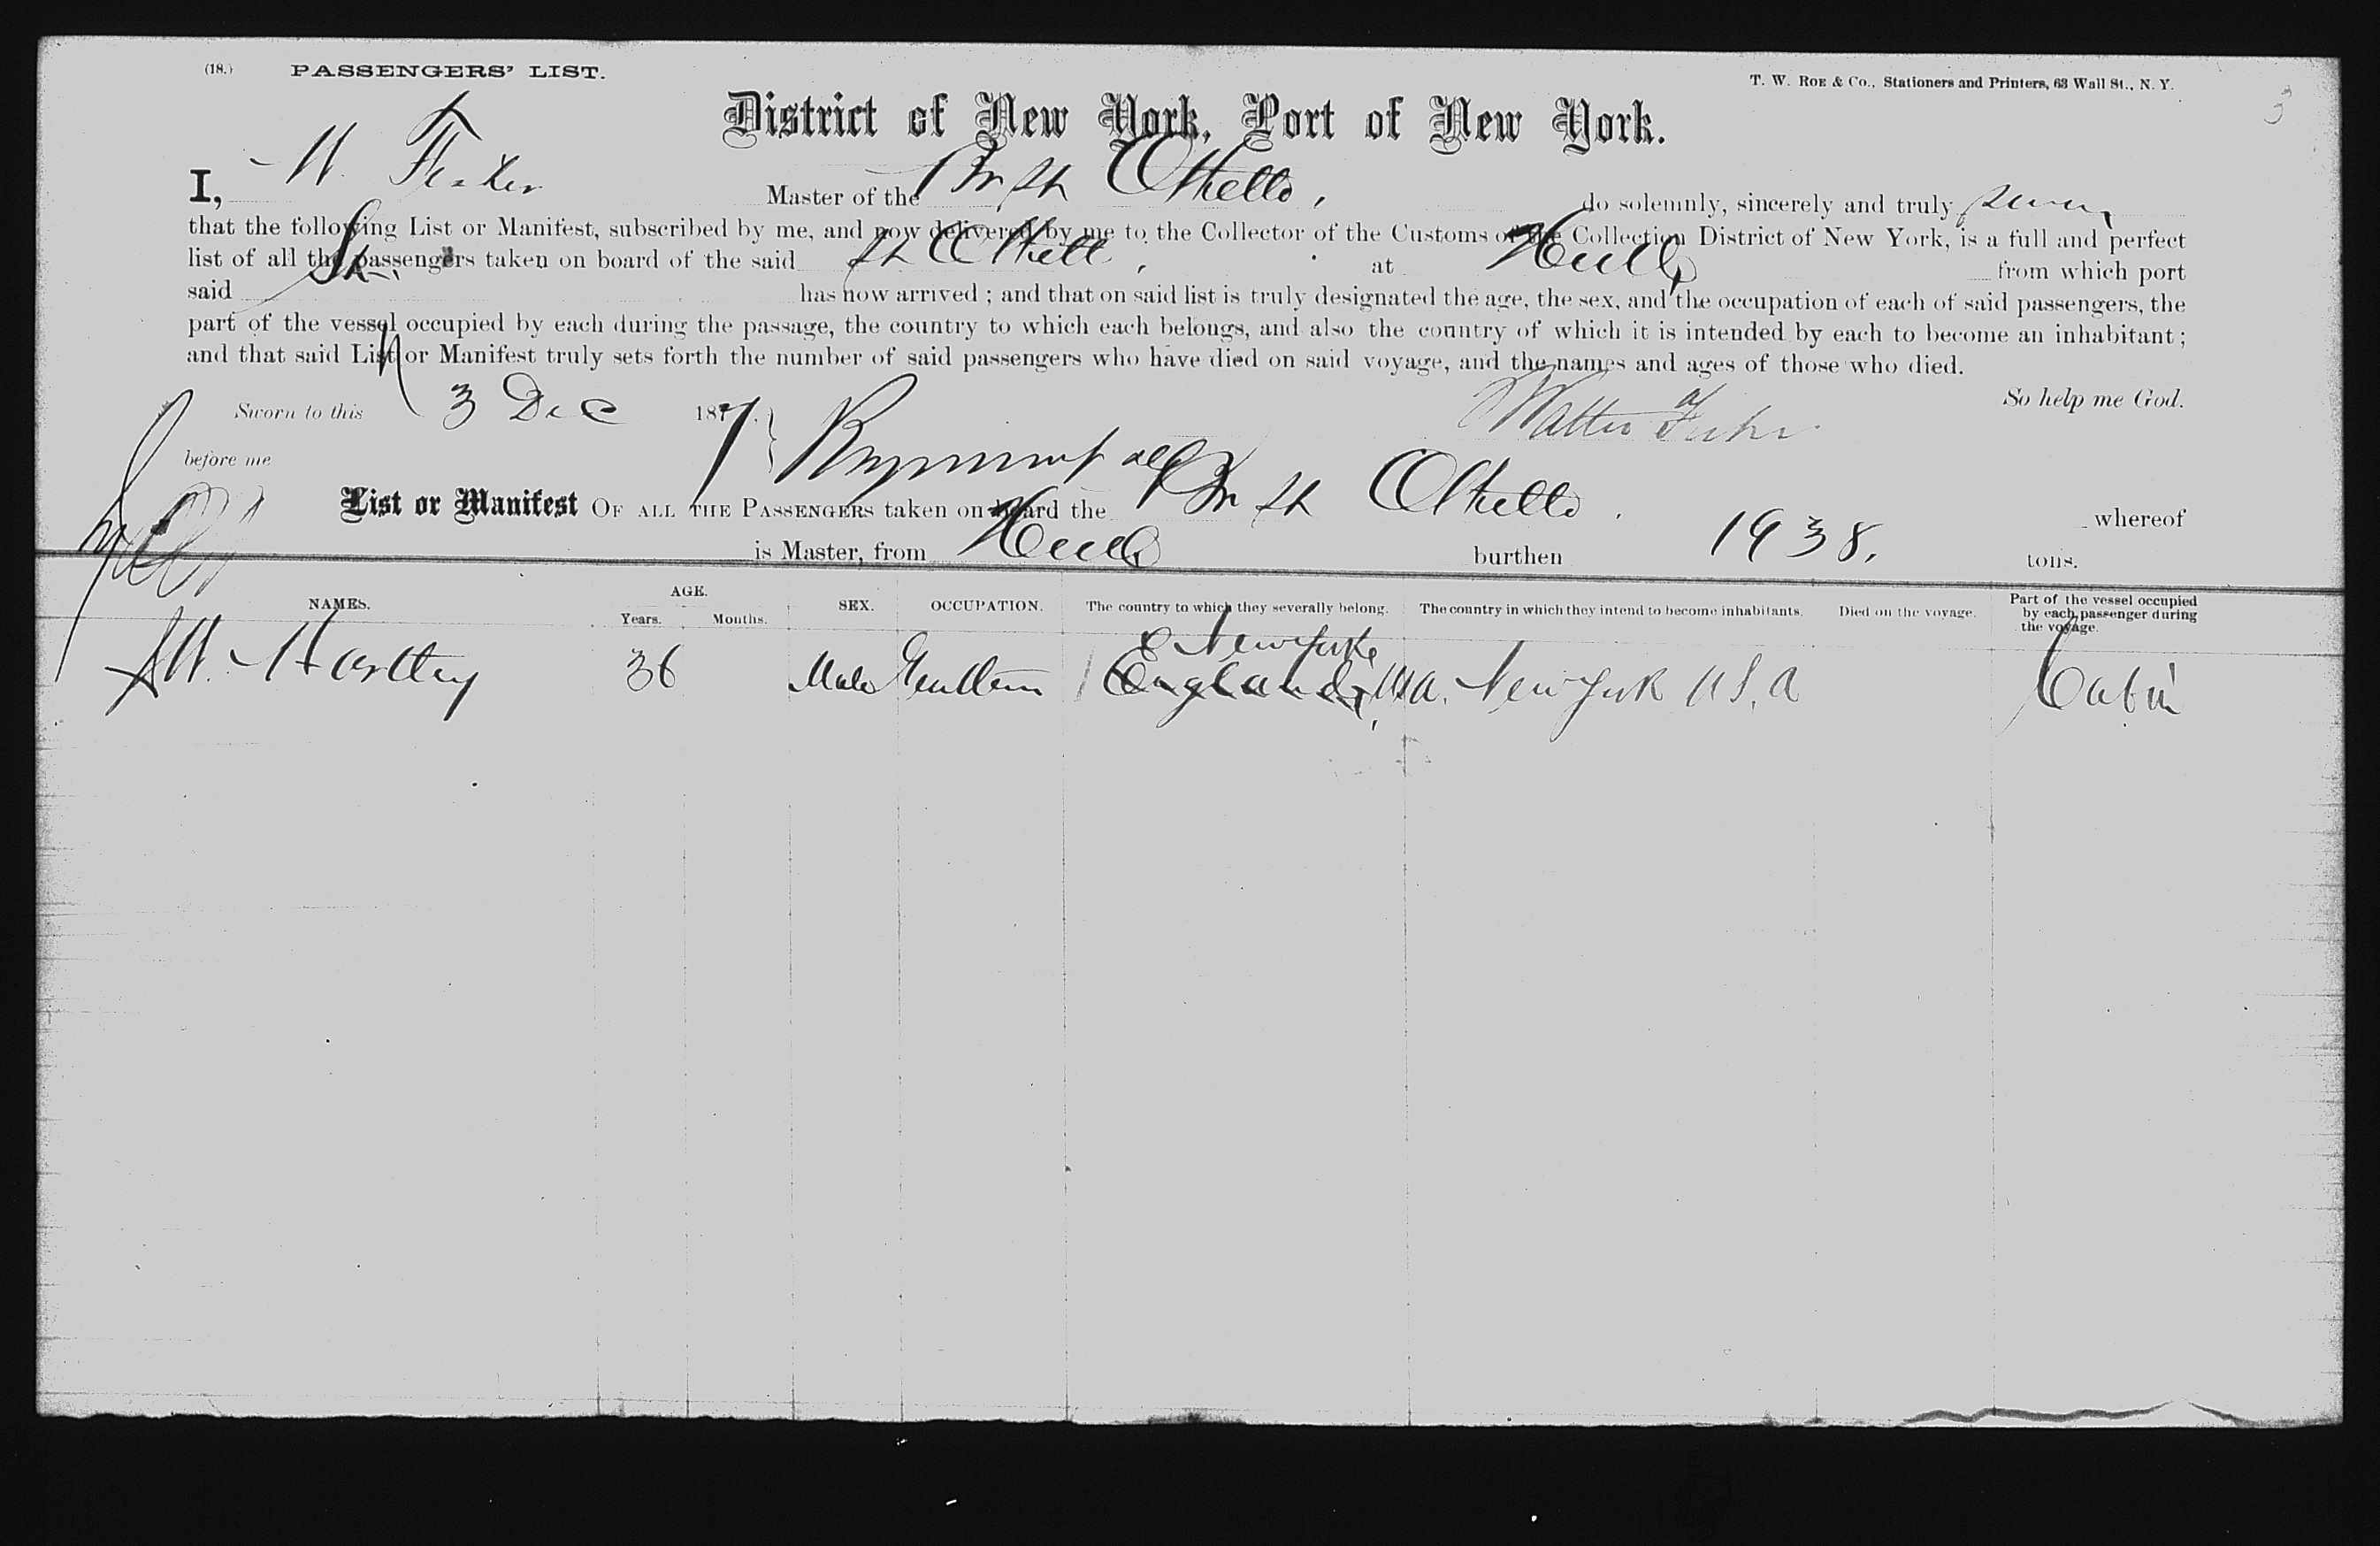 (18.) PASSENGERS' LIST.
T. W. ROE & CO., Stationers and Printers, 63 Wall St., N. Y.
3
District of New York, Port of New York.
I, W. Master of the Br str Othello, do solemnly, sincerely and truly swear
that the following List or Manifest, subscribed by me, and now delivered by me to the Collector of the Customs of the Collection District of New York, is a full and perfect
list of all the passengers taken on board of the said Othello, at Hull from which port
said Str. has now arrived ; and that on said list is truly designated the age, the sex, and the occupation of each of said passengers, the
part of the vessel occupied by each during the passage, the country to which each belongs, and also the country of which it is intended by each to become an inhabitant ;
and that said List or Manifest truly sets forth the number of said passengers who have died on said voyage, and the names and ages of those who died.
So help me God.
Sworn to this 3 Dec 1877. Walter
before me
List or Manifest OF ALL THE PASSENGERS taken on board the Br str Othello. whereof
is Master, from Hull burthen 1938. tons.
NAMES. AGE. Years. Months. SEX. OCCUPATION. The country to which they severally belong. The country in which they intend to become inhabitants. Died on the voyage. Part of the vessel occupied by each passenger during the voyage.
New York
Hartley 36 Male Gentleman England, USA. New York U.S.A Cabin